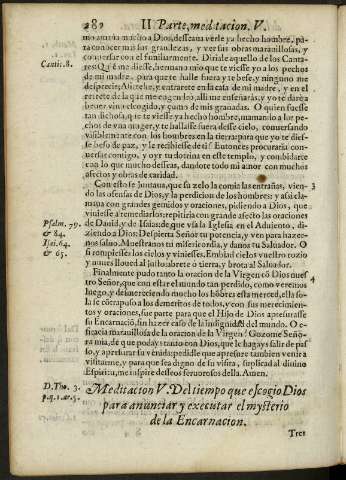 282 II Parte, meditacion. V.
mo amaua mucho a Dios, desseaua verle ya hecho hombre, pa-
ra conocer mas sus grandezas, y ver sus obras marauillosas, y
conuersar con el familiarmente. Diriale aquello de los Canta-
Cantic. 8.
res: Qui è me diesse, hermano mio que te viesse yo a los pechos
de mi madre, para que te halle fuera y te bese, y ninguno me
desprecie; Alli te y entrarete en la casa de mi madre, y en el
retrete de la que me engendro, alli me enseñaràs, y yo te darè a
beuer vino escogido, y çumo de mis granadas. O quien fuesse
tan dichosa, que te viesse ya hecho hombre, mamando a los pe-
chos de vna muger, y te hallasse fuera desse cielo, conuersando
visiblemente con los hombres en la tierra, para que yo te dies-
se beso de paz, y le recibiesse de ti! Entonces procuraria con-
uersar contigo, y oyr tu dotrina en este templo, y combidarte
con lo que mucho desseas, dandote todo mi amor con muchos
afectos y obras de caridad.
Con esto se juntaua, que su zelo la comia las entrañas, vien- 3
do las ofensas de Dios, y la perdicion de los hombres: y assi cla-
maua con grandes gemidos y oraciones, pidiendo a Dios, que
viniesse a remediarlos: repitiria con grande afecto las oraciones
Psalm. 79.
& 84.
de Dauid, y de Isaias: de que vsa la Iglesia en el Aduiento, di-
ziendo a Dios: Despierta Señor tu potencia, y ven para hazer-
Isai. 64.
& 65.
nos saluo. Muestranos tu misericordia, y danos tu Saluador. O
si rompiesses los cielos y viniesses. Embiad cielos vuestro rozio
y nuues lloued al justo: abrete o tierra, y brota al Saluador.
Finalmente pudo tanto la oracion de la Virgen cõ Dios nues 4
tro Señor, que con estar el mundo tan perdido, como veremos
luego, y desmereciendo mucho los hõbres esta merced, ella so-
la se cõtrapuso a los demeritos de todos, y con sus merecimien-
tos y oraciones, fue parte para que el Hijo de Dios apresurasse
su Encarnacion, sin hazer caso de la indignidad del mundo. O e-
ficacia marauillosa de la oracion de la Virgen! Gozome Seño-
ra mia, de que podays tanto con Dios, que le hagays salir de pas-
so, y apresurar su venida: pedilde que apresure tambien venir a
visitarme, y para que sea digno de su visita, suplicad al diuino
Espiritu, me inspire desseos feruorosos della. Amen.
D. Tho. 3.
p. q. 1. ar. 5.
Meditacion V. Del tiempo que escogio Dios
para anunciar y executar el mysterio
de la Encarnacion.
Tres